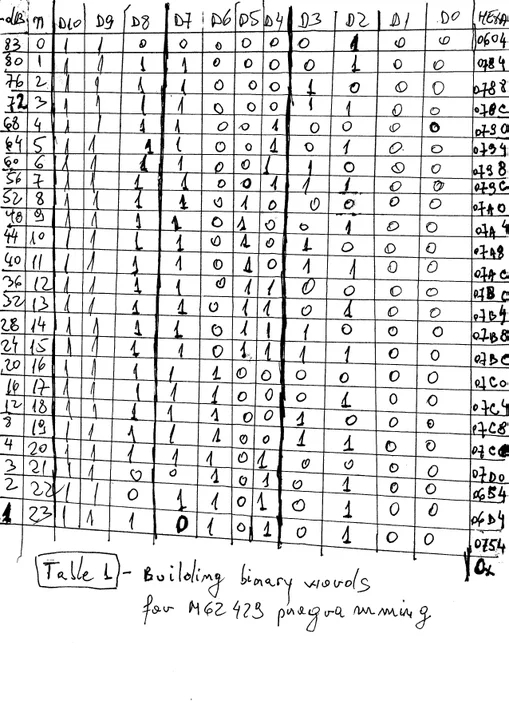 -dB n D10 D9 D8 D7 D6 D5 D4 D3 D2 D1 D0 HEXA
83 0 1 1 0 0 0 0 0 0 1 0 0 0604
80 1 1 1 1 1 0 0 0 0 1 0 0 0784
76 2 1 1 1 1 0 0 0 1 0 0 0 0788
72 3 1 1 1 1 0 0 0 1 1 0 0 078C
68 4 1 1 1 1 0 0 1 0 0 0 0 0790
64 5 1 1 1 1 0 0 1 0 1 0 0 0794
60 6 1 1 1 1 0 0 1 1 0 0 0 0798
56 7 1 1 1 1 0 0 1 1 1 0 0 079C
52 8 1 1 1 1 0 1 0 0 0 0 0 07A0
48 9 1 1 1 1 0 1 0 0 1 0 0 07A4
44 10 1 1 1 1 0 1 0 1 0 0 0 07A8
40 11 1 1 1 1 0 1 0 1 1 0 0 07AC
36 12 1 1 1 1 0 1 1 0 0 0 0
32 13 1 1 1 1 0 1 1 0 1 0 0 07B4
28 14 1 1 1 1 0 1 1 1 0 0 0 07B8
24 15 1 1 1 1 0 1 1 1 1 0 0 07BC
20 16 1 1 1 1 1 0 0 0 0 0 0 07C0
16 17 1 1 1 1 1 0 0 0 1 0 0 07C4
12 18 1 1 1 1 1 0 0 1 0 0 0 07C8
8 19 1 1 1 1 1 0 0 1 1 0 0 07CC
4 20 1 1 1 1 1 0 1 0 0 0 0 07D0
3 21 1 1 0 0 1 0 1 0 1 0 0 0654
2 22 1 1 0 1 1 0 1 0 1 0 0 06D4
1 23 1 1 1 0 1 0 1 0 1 0 0 0754
0x
Table 1 - Building binary words
for M62429 programming